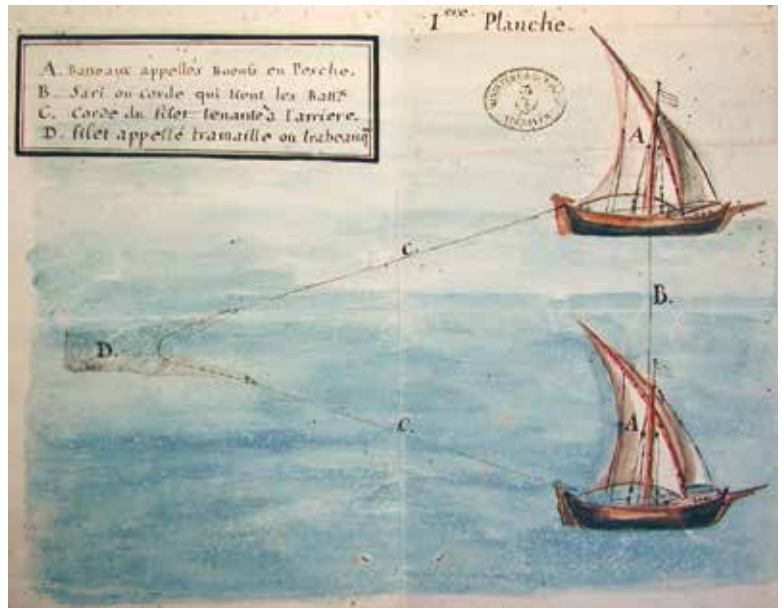 1ere Planche.
A. Bateaux appellés Boeufs en Pesche.
B. Sari ou corde qui tient les
C. Corde du filet tenante à l'arriere.
D. filet appellé tramaille ou
A.
C.
B.
D.
A
C.